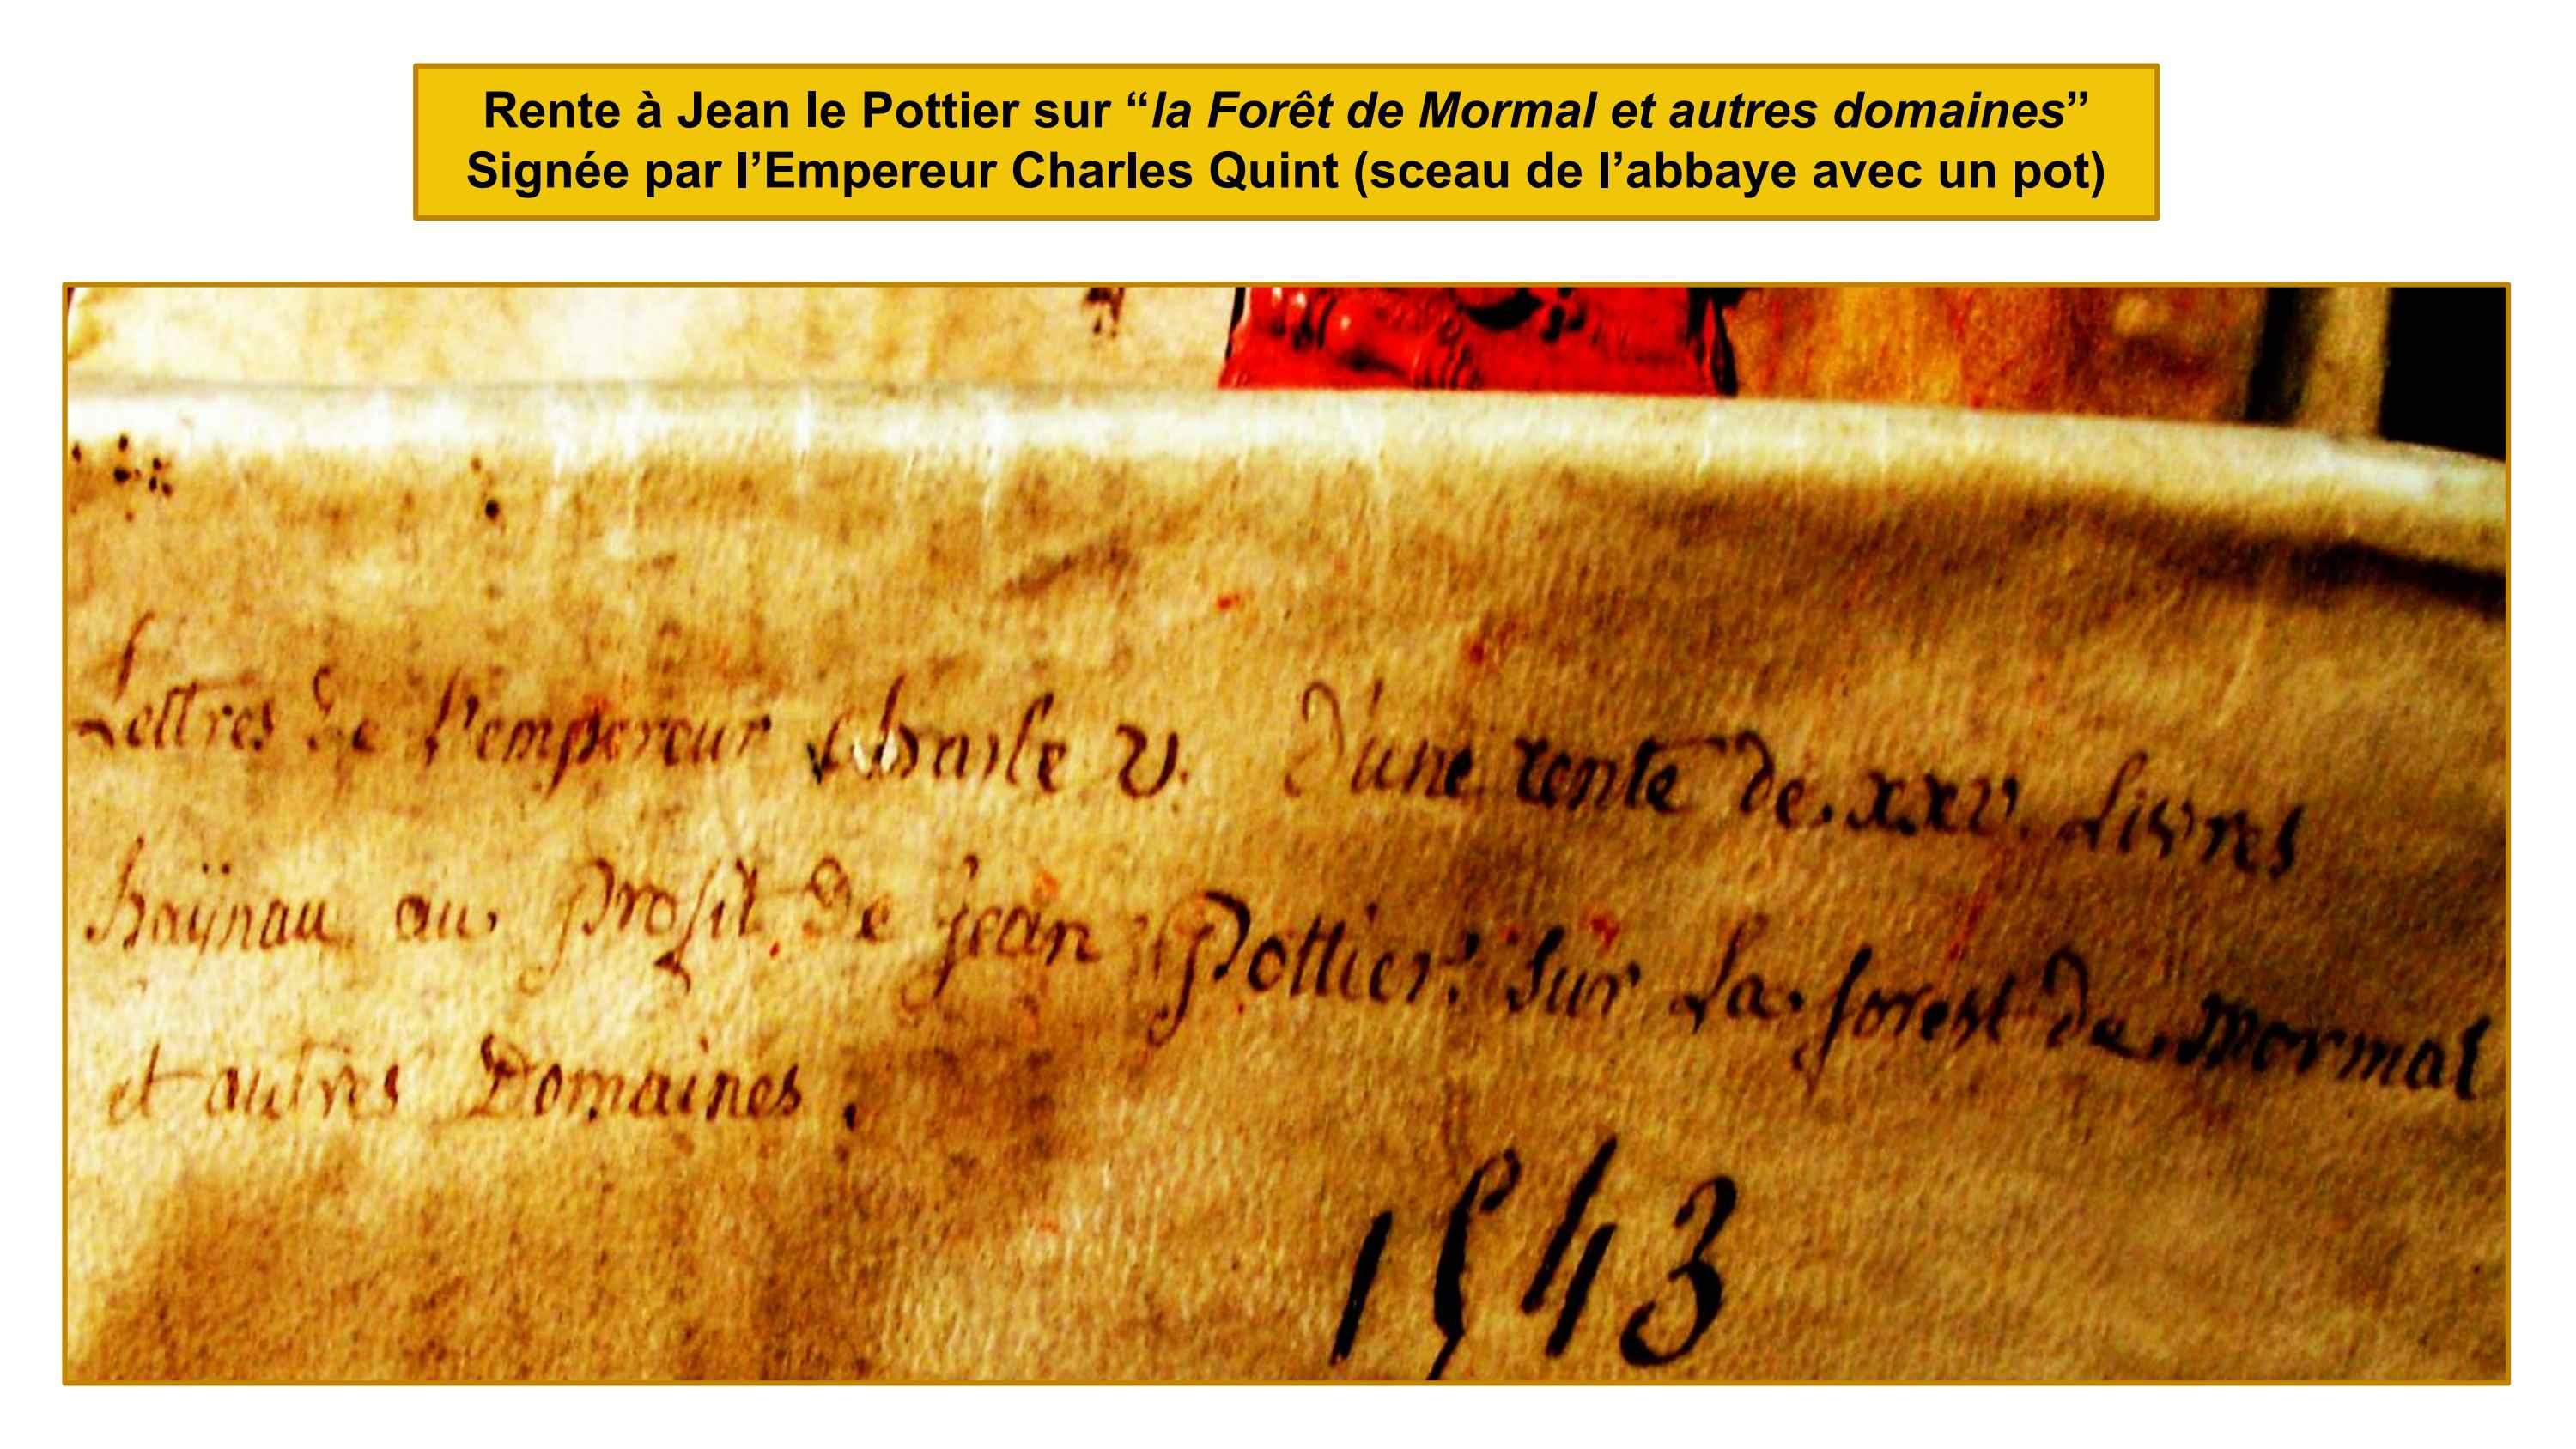 Rente à Jean le Pottier sur “la Forêt de Mormal et autres domaines”
Signée par l’Empereur Charles Quint (sceau de l’abbaye avec un pot)
Lettres de l'empereur Charle v. d'une rente de xxv. Livres
haÿnau au profit de jean Pottier sur La forest de Mormal
et autres Domaines.
1543